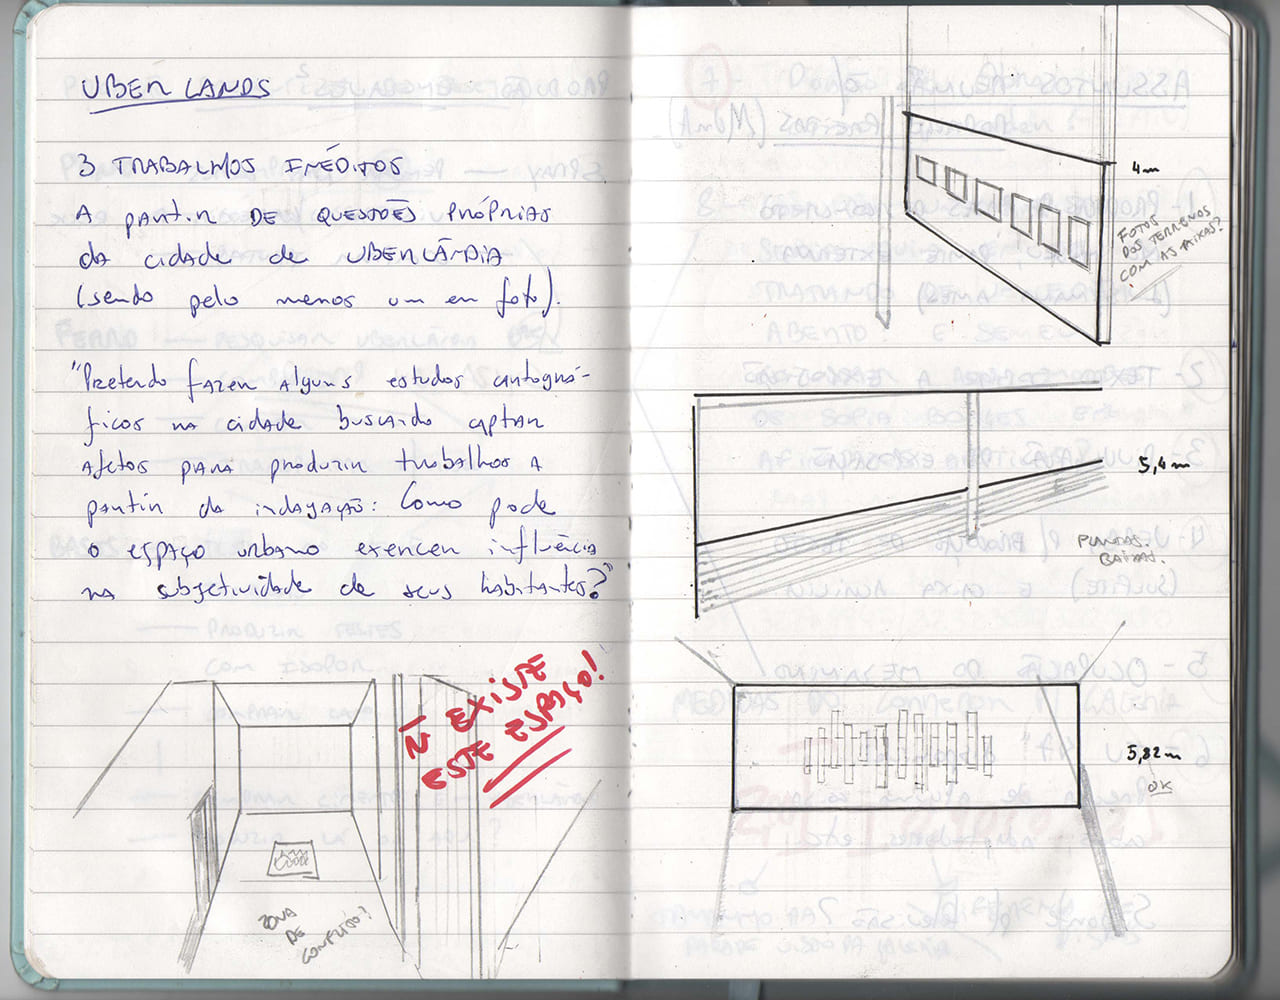 UBERLANDS
3 TRABALHOS INÉDITOS
A partir DE QUESTÕES PRÓPRIAS
da cidade de UBERLÂNDIA
(sendo pelo menos um em foto).
"Pretendo fazer alguns estudos cartográ-
ficos na cidade buscando captar
afetos para produzir trabalhos a
partir da indagação: Como pode
o espaço urbano exercer influência
na subjetividade de seus habitantes?"
Ñ EXISTE
ESTE ESPAÇO!
ZONA
DE
CONFLITO?
4m
FOTOS
DOS TERRENOS
COM AS FAIXAS?
5,4m
PLANTAS
BAIXAS.
5,82m
OK